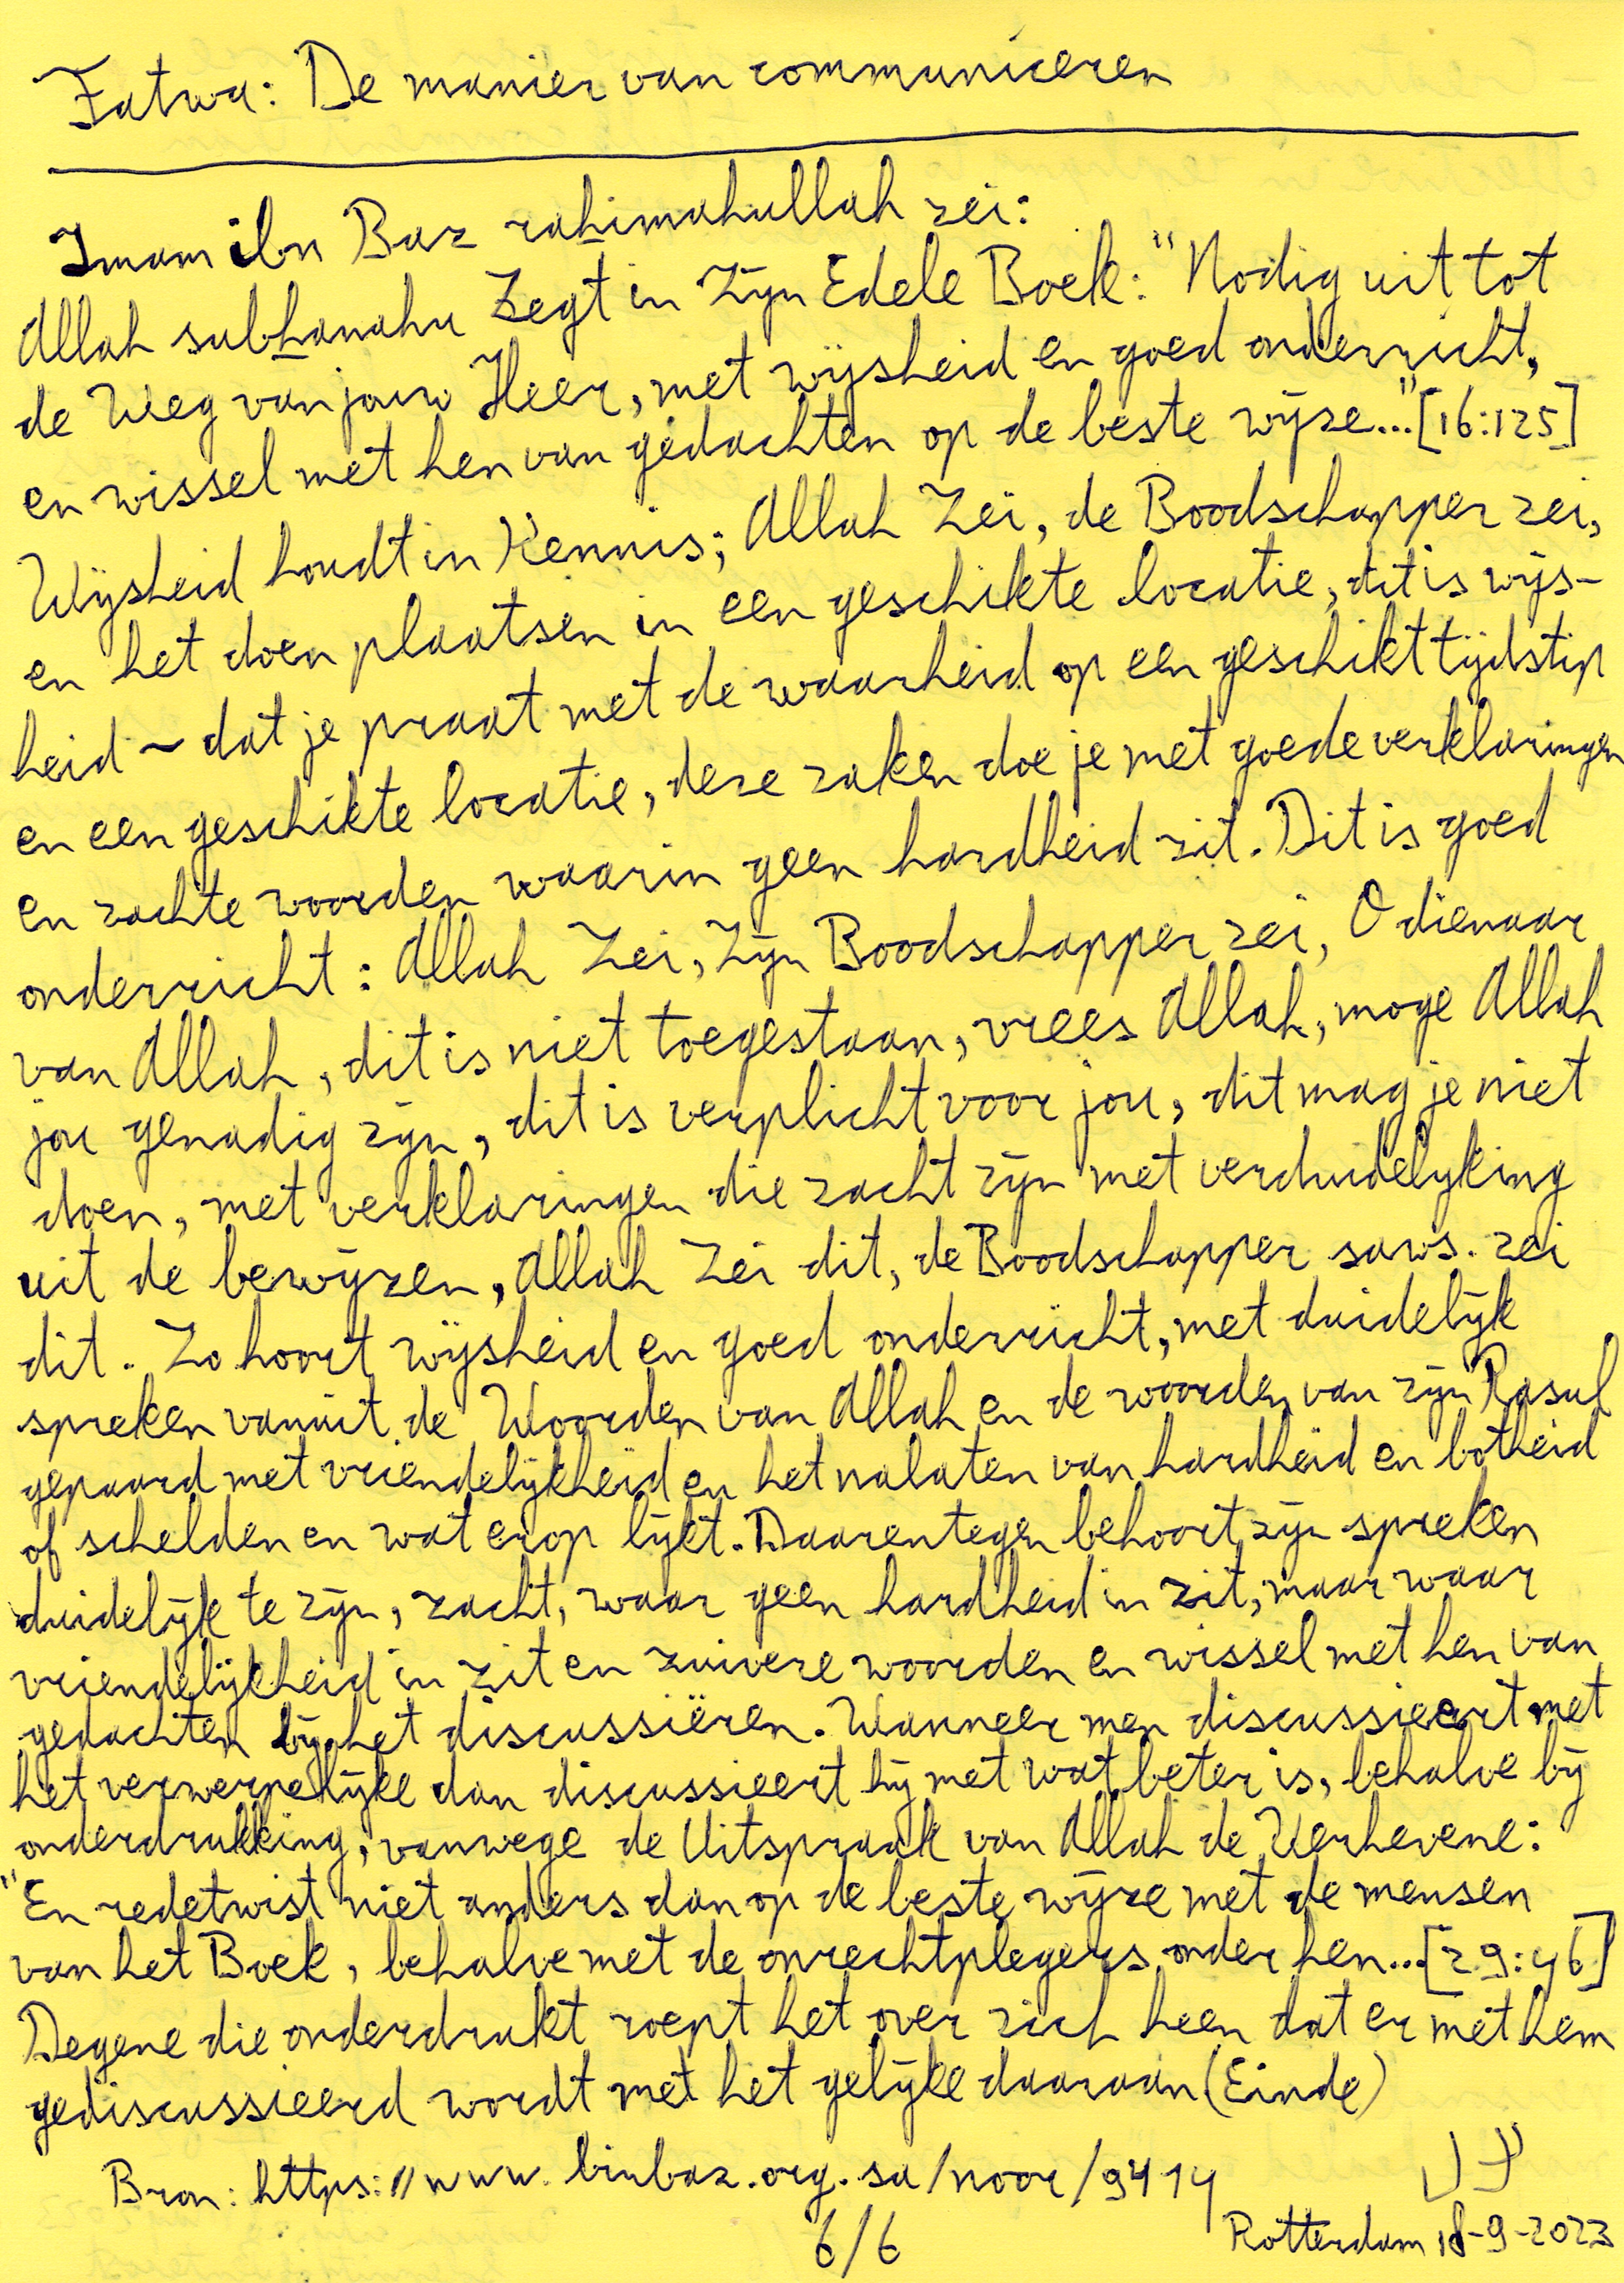 Fatwa: De manier van communiceren
Imam ibn Baz rahimahullah zei:
Allah subhanahu Zegt in Zijn Edele Boek: "Nodig uit tot
de Weg van jouw Heer, met wijsheid en goed onderricht,
en wissel met hen van gedachten op de beste wijze..." [16:125]
Wijsheid houdt in Kennis; Allah Zei, de Boodschapper zei,
en het doen plaatsen in een geschikte locatie, dit is wijs-
heid ~ dat je praat met de waarheid op een geschikt tijdstip
en een geschikte locatie, deze zaken doe je met goede verklaringen
en zachte woorden waarin geen hardheid zit. Dit is goed
onderricht: Allah Zei, Zijn Boodschapper zei, O dienaar
van Allah, dit is niet toegestaan, vrees Allah, moge Allah
jou genadig zijn, dit is verplicht voor jou, dit mag je niet
doen, met verklaringen die zacht zijn met verduidelijking
uit de bewijzen, Allah Zei dit, de Boodschapper saws. zei
dit. Zo hoort wijsheid en goed onderricht, met duidelijk
spreken vanuit de Woorden van Allah en de woorden van zijn Rasul
gepaard met vriendelijkheid en het nalaten van hardheid en botheid
of schelden en wat erop lijkt. Daarentegen behoort zijn spreken
duidelijk te zijn, zacht, waar geen hardheid in zit, maar waar
vriendelijkheid in zit en zuivere woorden en wissel met hen van
gedachten bij het discussiëren. Wanneer men discussieert met
het verwerpelijke dan discussieert hij met wat beter is, behalve bij
onderdrukking, vanwege de Uitspraak van Allah de Verhevene:
"En redetwist niet anders dan op de beste wijze met de mensen
van het Boek, behalve met de onrechtplegers onder hen... [29:46]
Degene die onderdrukt roept het over zich heen dat er met hem
gediscussieerd wordt met het gelijke daaraan (Einde)
Bron: https://www.binbaz.org.sa/noor/9414
6/6
Rotterdam 18-9-2023